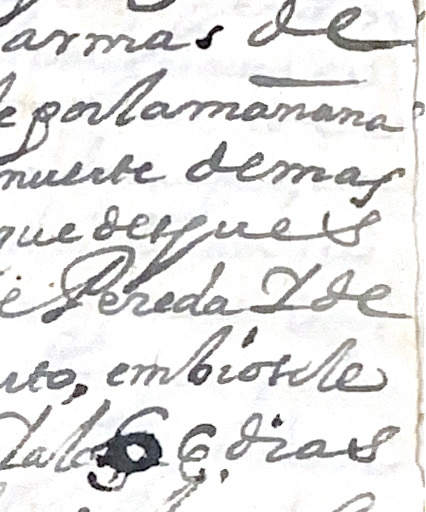 armas de
e por la mañana
muerte demas
que despues
e Pereda Y de
uto, embiosele
a los 6 dias